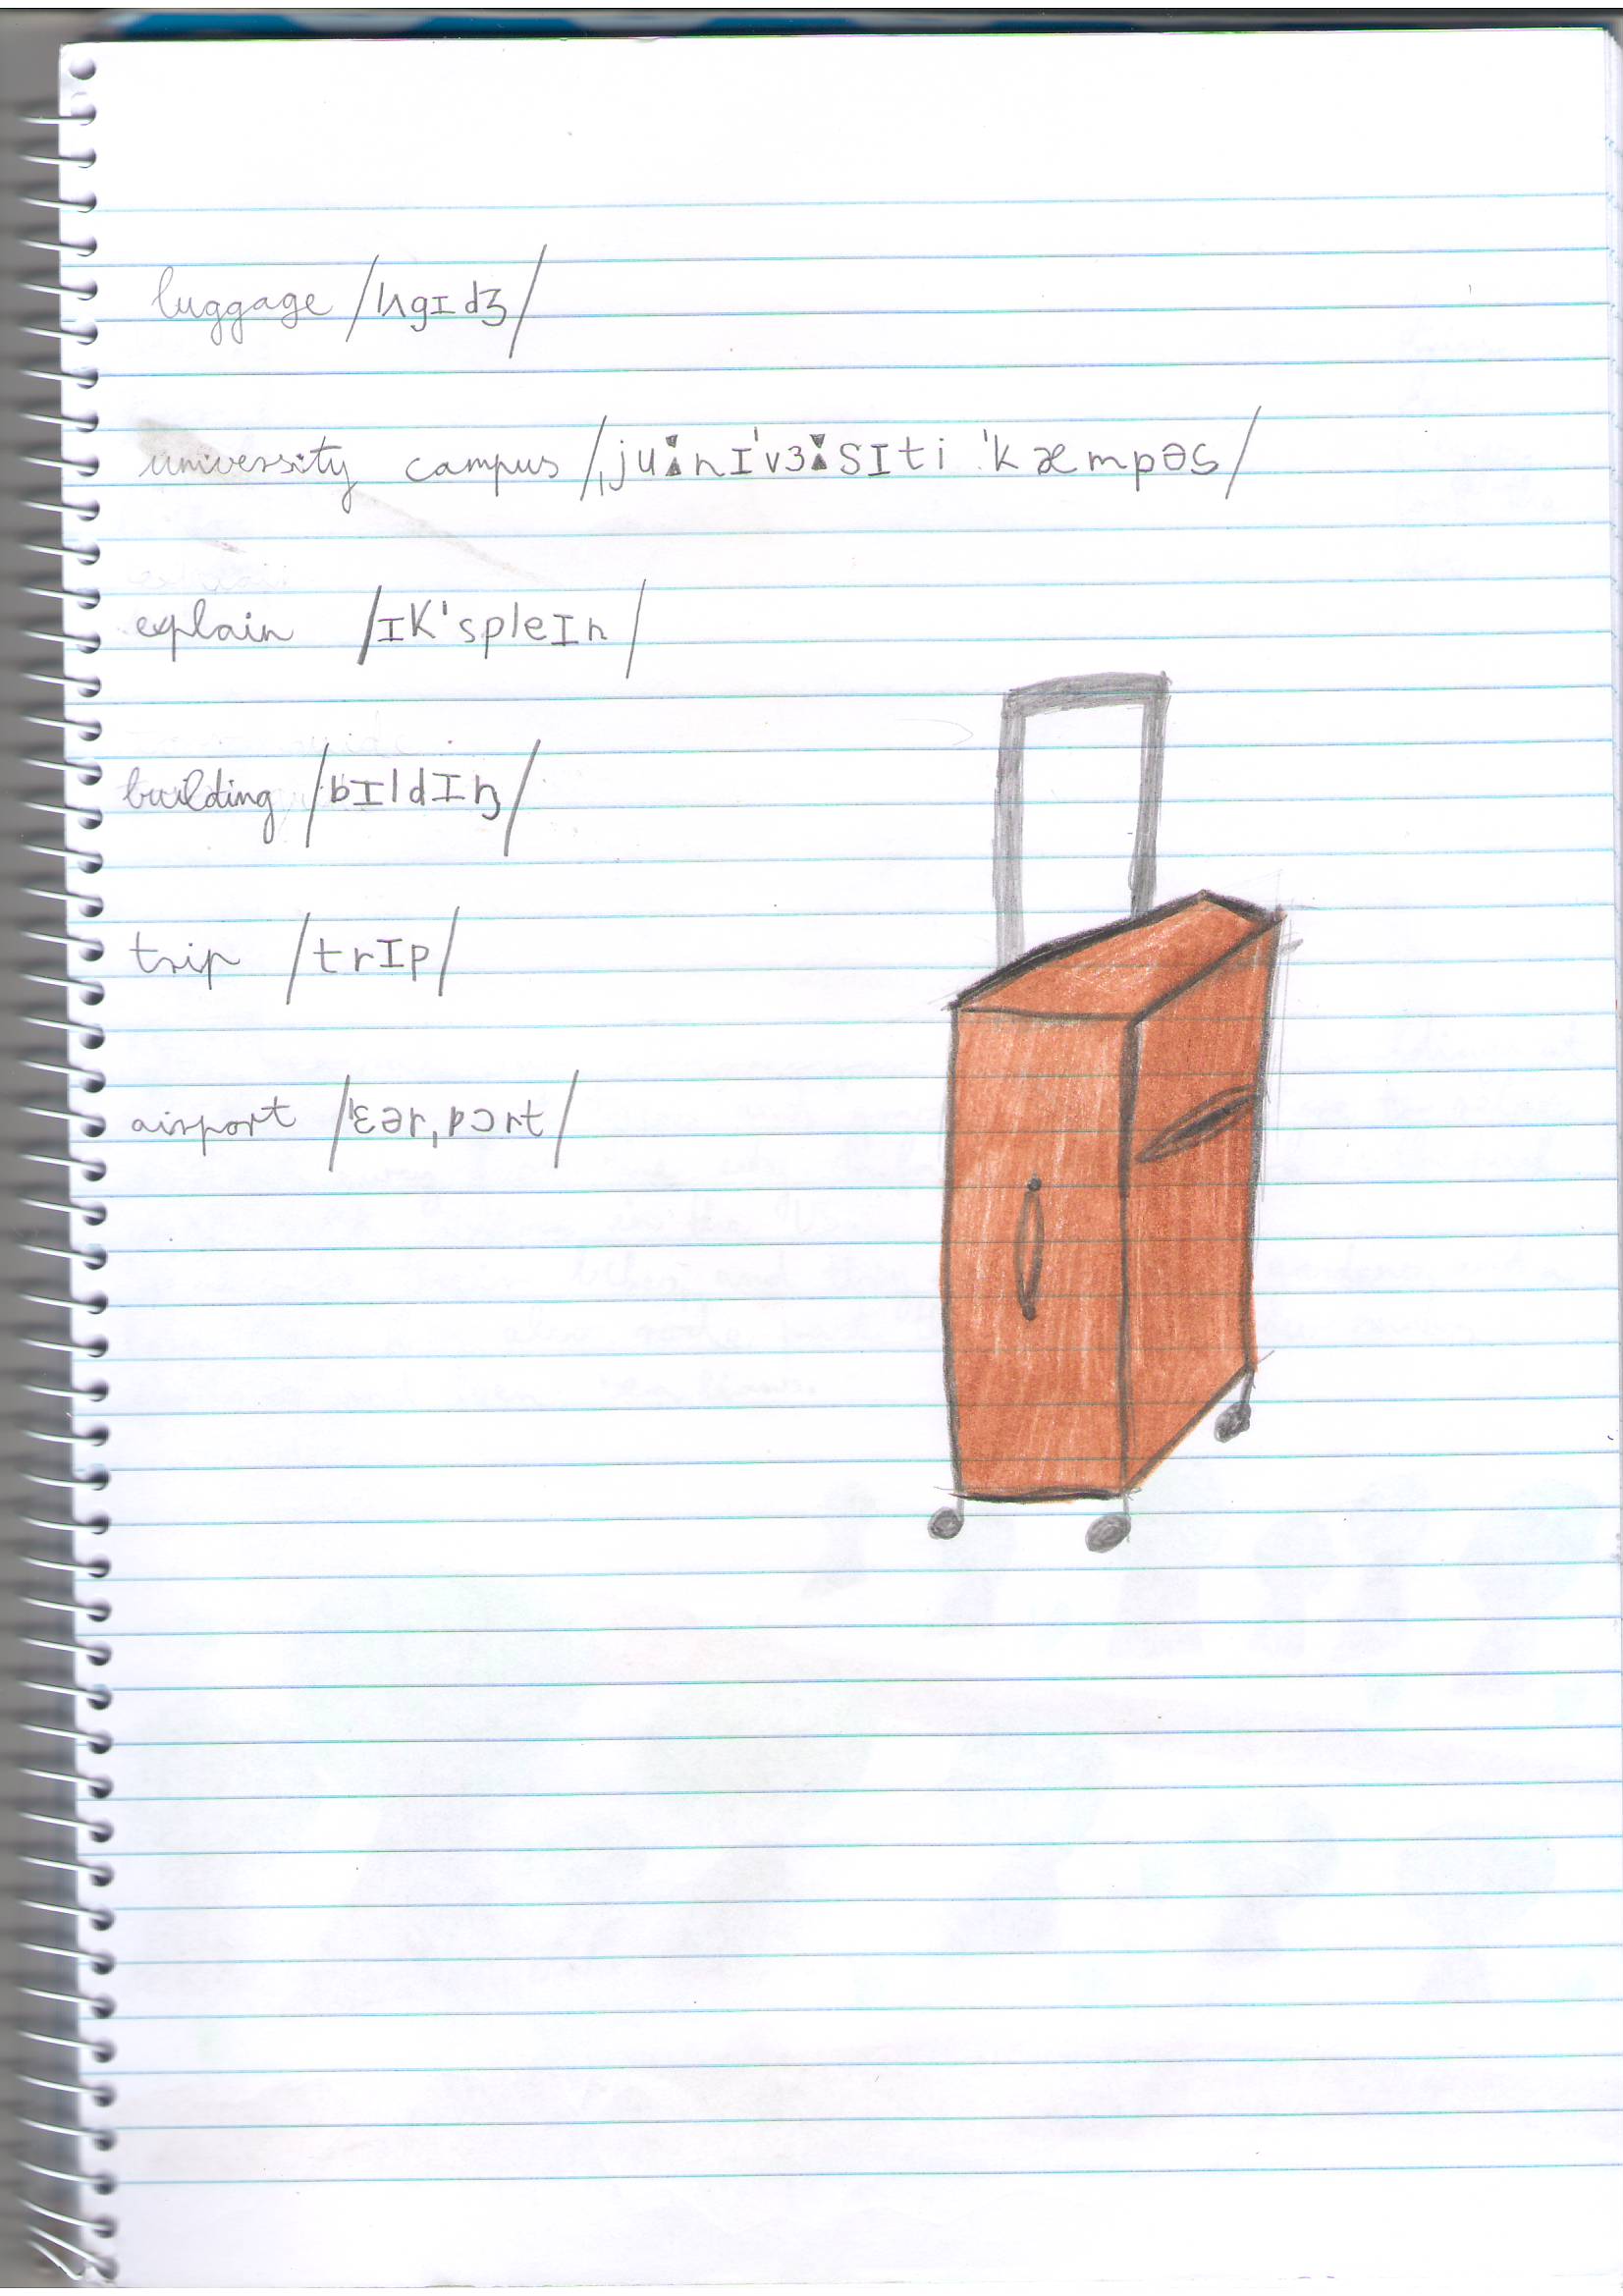 luggage /lʌgɪdʒ/
university campus /ˌjuːnɪˈvɜːsɪti ˈkæmpəs/
explain /ɪkˈspleɪn/
building /bɪldɪŋ/
trip /trɪp/
airport /ˈɛərˌpɔrt/